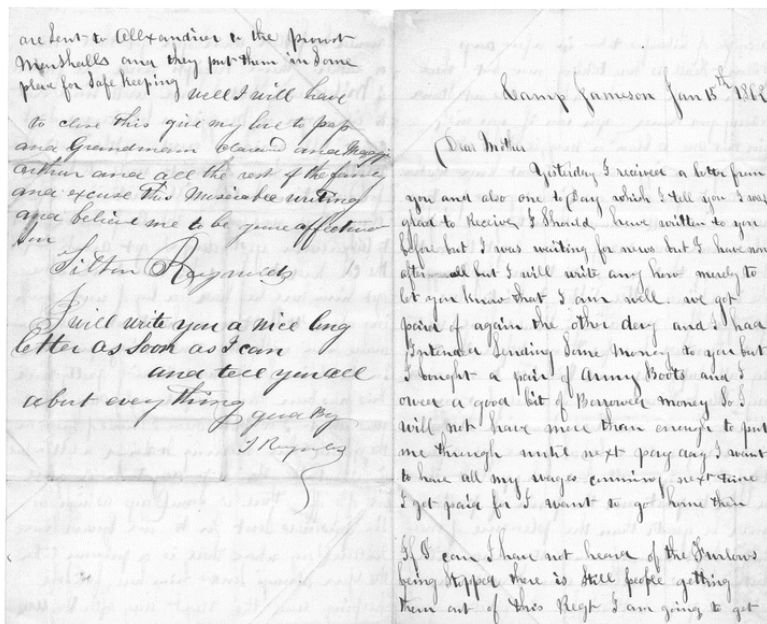 are Sent to Allxandier to the Provost
Marshalls and they put them in Some
place for Safe Keeping Well I will have
to close this give my love to pap
and Grandmam Edward and Maggi
Arthur and all the rest of the family
and excuse this Miserable writing
and believe me to be your affectinat
Son
Tilton Reynolds
I will write you a nice long
letter as Soon as I can
and tell you all
abut evey thing
good By
T Reynolds
Camp Jameson Jan 15th 1862
Dear Mother
Yesterday I received a leter from
you and also one to Day which I tell you I was
glad to Receive I Should have written to you
before but I was waiting for news but I have non
after all but I will write any how merely to
let you Know that I am well. We got
paid of again the other day and I had
Intended Sending Some Money to you but
I bought a pair of Army Boots and I
owed a good bit of Borrowed money So I
will not have more than enough to put
me through until next pay day I want
to have all my wages cumming next time
I get paid for I want to got home then
If I can I have not heard of the Furlows
being Stopped there is Still people getting
them out of this Regt I am going to get